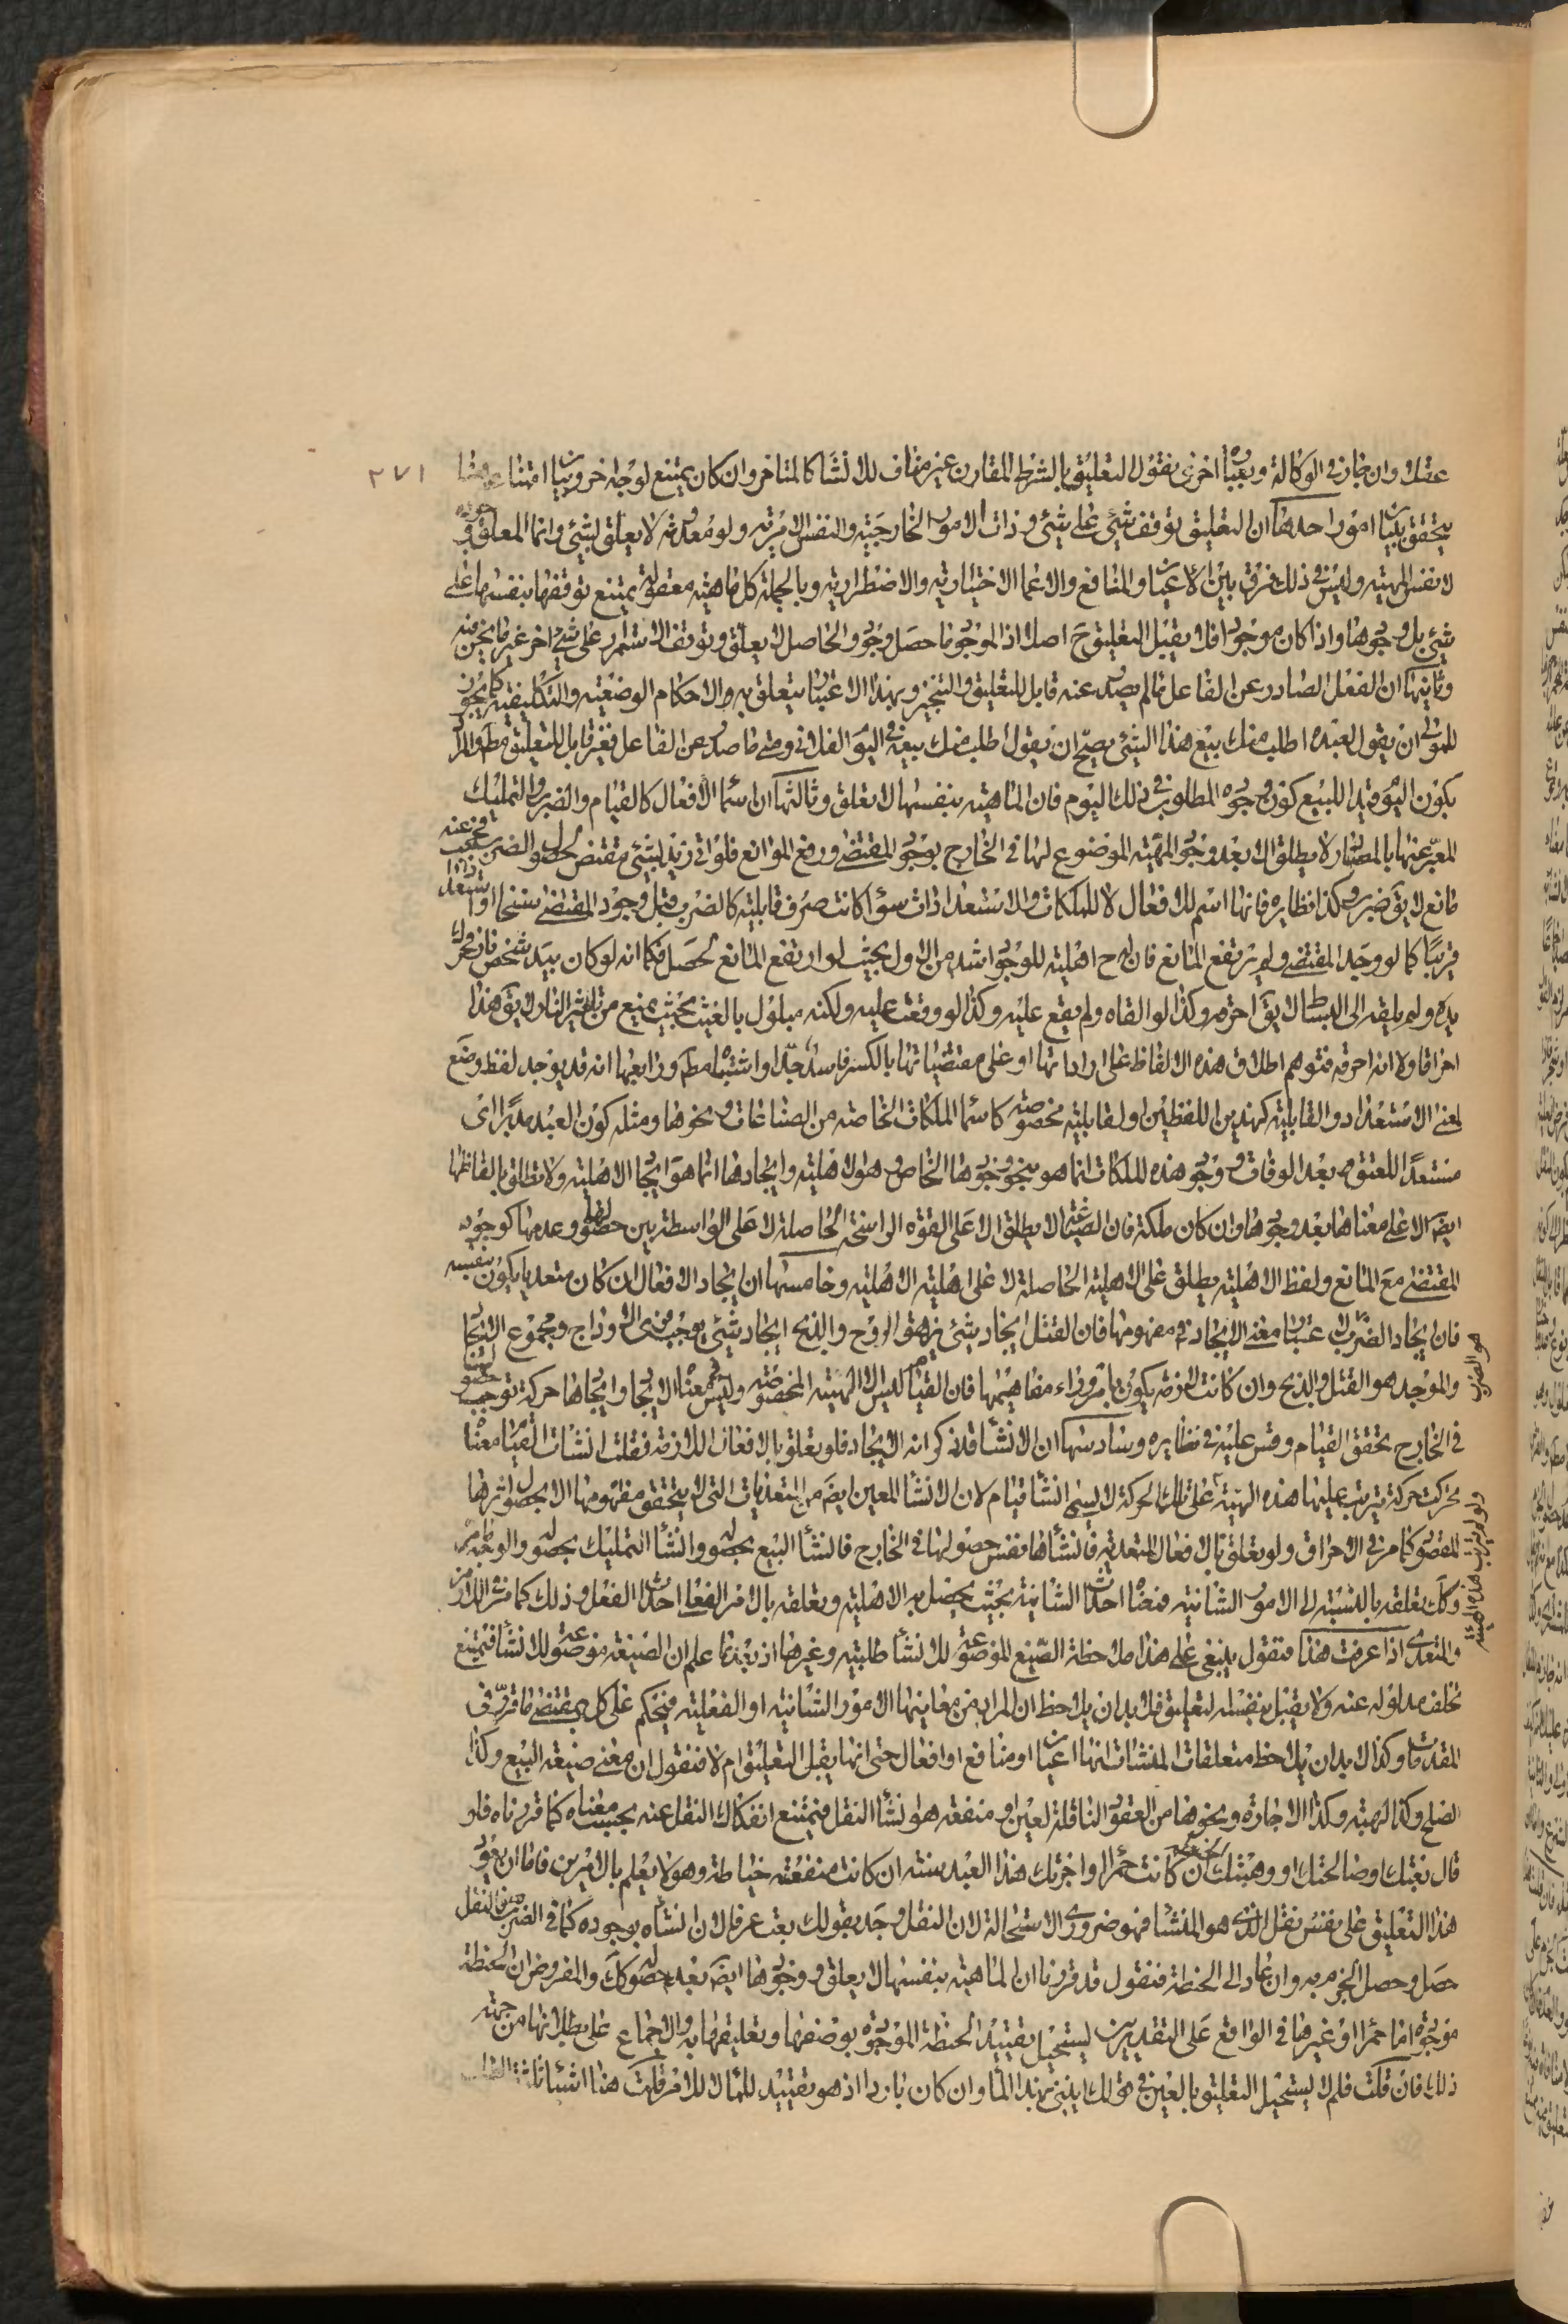 عقلا وان جاز في الوكالة وبعبارة اخرى نقول التعليق بالشرط المقارن غير مناف للانشاء كالمتاخر وان كان يمتنع لوجه اخر وبيان امتناع
يتحقق ببيان امور احدها ان التعليق توقف شيء على شيء وذات الامور الخارجية والنفس الامرية ولو معدومة لا يعلق بشيء وانما المعلق
لا نفس المهية وليس في ذلك فرق بين الاعيان والمنافع والاعمال الاختيارية والاضطرارية وبالجملة كل ماهية معقولة يمتنع توقفها بنفسها على
شيء بل وجودها واذا كان موجودا فلا يقبل التعليق ح اصلا اذ الموجود ما حصل وجوده والحاصل لا يعلق وتوقف الاستمرار على شيء اخر غير ما نحن فيه
وثانيها ان الفعل الصادر عن الفاعل ما لم يصدر عنه قابل للتعليق والتنجيز وبهذا الاعتبار يتعلق به الاحكام الوضعية والتكليفية كما يجوز
للمولى ان يقول لعبده اطلب منك بيع هذا الشيء يصح ان يقول اطلب منك بيعه في اليوم الفلاني ومتى ما صدر عن الفاعل فغير قابل للتعليق مط والمراد
بكون اليوم قيدا للبيع كون وجوده المطلوب في ذلك اليوم فان الماهية بنفسها لا تعلق وثالثها ان اسماء الافعال كالقيام والضرب والتمليك
المعبر عنها بالمصادر لا يطلق الا بعد وجود المهية الموضوع لها في الخارج بوجود المقتضى ورفع الموانع فلو اتى زيد بشيء مقتض لحصول الضرب
مانع لا يق ضرب وكذا نظايره فانها اسم للافعال لا للملكات والاستعدادات سواء كانت صرف قابلية كالضرب قبل وجود المقتضى
قريبا كما لو وجد المقتضى ولم يرتفع المانع فان له ح اهلية للوجود اشد من الاول بحيث لو ارتفع المانع لحصل فكما انه لو كان بيد شخص نار
يده ولم يلقه الى البساط لا يق احرقه وكذا لو القاه ولم يقع عليه وكذا لو وقعت عليه ولكنه مبلول بالغيث بحيث يمنع من تاثير النار لا يق هذا
احراقا ولا انه احرقه فتوهم اطلاق هذه الالفاظ على ارادتها او على مقتضياتها بالكسر فاسد جدا واشتباه مط ورابعها انه قد يوجد لفظ وضع
لمعنى الاستعداد والقابلية كهذين اللفظين او لقابلية مخصوصة كاسماء الملكات الخاصة من الصناعات ونحوها ومثله كون العبد مدبرا اى
مستعدا للعتق بعد الوفاة ووجود هذه الملكات انما هو بنحو وجودها الخاص وهو الاهلية وايجادها انما هو ايجاد الاهلية ولا تطلق الفاظها
ايضا الا على معناها بعد وجودها وان كان ملكة فان الصناعة لا يطلق الا على القوة الراسخة الحاصلة لا على الواسطة بين حصولها وعدمها كوجود
المقتضى مع المانع ولفظ الاهلية يطلق على الاهلية الحاصلة لا على اهلية الاهلية وخامسها ان ايجاد الافعال ان كان متعديا يكون بنفسه
فان ايجاد الضرب لاعتبار معنى الايجاد في مفهومها فان القتل ايجاد شيء يزهق الروح والذبح ايجاد شيء يوجب فري الاوداج ومجموع الايجاد
والموجد هو القتل والذبح وان كانت لازمة يكون بامر وراء مفاهيمها فان القيام ليس الا الهيئة المخصوصة وليس في معناه الايجاد وايجادها حركة توجب
في الخارج تحقق القيام وقس عليه في نظايره وسادسها ان الانشاء قد ذكر انه الايجاد فلو تعلق بالافعال اللازمة فقلت انشات القيام معناه
تحركت حركة يترتب عليها هذه الهيئة على تلك الحركة لا يسمى انشاء قيام لان الانشاء المعين ايضا من المتعديات التي لا يتحقق مفهومها الا بحصول اثرها
المقصود كما مر في الاحراق ولو تعلق بالافعال المتعدية فانشاؤها نفس حصولها في الخارج فانشاء البيع بحصوله وانشاء التمليك بحصوله
وكك تعلقه بالنسبة الى الامور الشانية فمعناه احداث الشانية بحيث يحصل به الاهلية وتعلقه بالامر الفعلي احداث الفعل وذلك كما في اللازم
والمتعدي اذا عرفت هذا فنقول ينبغي على هذا ملاحظة الصيغ الموضوعة للانشاء طلبية وغيرها اذ بعد ما علم ان الصيغة موضوعة للانشاء فيمتنع
تخلف مدلوله عنه ولا يقبل بنفسه لتعليق فلا بد ان يلاحظ ان المراد من معانيها الامور الشانية او الفعلية فيحكم على كل بمقتضى ما قرر في
المقدمات وكذا لا بد ان يلاحظ متعلقات المنشات انها اعيان او منافع او افعال حتى انها يقبل التعليق ام لا فنقول ان معنى صيغة البيع وكذا
الصلح وكذا الهبة وكذا الاجارة ونحوها من العقود الناقلة لعين او منفعة هو انشاء النقل فيمتنع انفكاك النقل عنه بحسب معناه كما قررناه فلو
قال بعتك او صالحتك او وهبتك ان كانت حمراء او اجرتك هذا العبد سنة ان كانت منفعته خياطة وهو لا يعلم بالامرين فاما ان يعود
هذا التعليق على نفس نقل الذي هو المنشا فهو ضروري الاستحالة لان النقل وجد بقولك بعت عرفا لان انشاءه بوجوده كما في الضرب
حصل وحصل الجزم به وان عاد الى الحنطة فنقول قد قررنا ان الماهية بنفسها لا يعلق ووجودها ايضا بعد حصوله كك والمفروض ان الحنطة
موجودة اما حمراء او غيرها في الواقع على التقديرين يستحيل تقييد الحنطة الموجودة بوصفها وتعليقها به والاجماع على بطلانها من جهة
ذلك فان قلت فلم لا يستحيل التعليق بالعين في قولك ايتني بهذا الماء وان كان باردا اذ هو تقييد للماء لا للامر قلت هنا اشياء ثلثة
هو الضرب
ولو لم يترتب هذه الهيئة
٢٧١